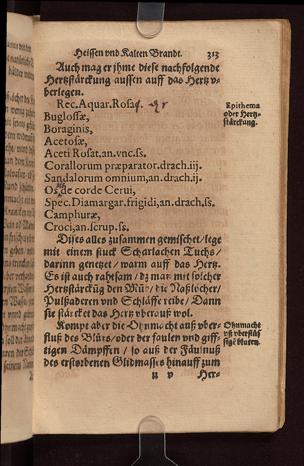 Heissen vnd Kalten Brandt. 313
Auch mag er jhme diese nachfolgende
Hertzstärckung aussen auff das Hertz v-
berlegen.
Rec. Aquar. Rosaꝝ.
Epithema
oder Hertz-
stärckung.
Buglossæ,
Boraginis,
Acetosæ,
Aceti Rosat. an. vnc. ss.
Corallorum præparator. an. drach. iij.
Sandalorum omnium, an. drach. ij.
Os de corde Cerui,
Spec. Diamargar. frigidi, an. drach. ss.
Camphuræ,
Croci, an. scrup. ss.
Dises alles zusammen gemischet / lege
mit einem stuck Scharlachen Tuchs /
darinn genetzt / warm auff das Hertz.
Es ist auch rahtsam / dz man mit solcher
Hertzstärckũg den Mũd / die Naßlöcher /
Pulßadern vnd Schläffe reibe / Dann
sie stärcket das Hertz vberauß wol.
Kompt aber die Ohnmacht auß vber-
fluß des Bluts / oder der faulen vnd giff-
tigen Dämpffen / so auß der Fäulnuß
des erstorbenen Glidmasses hinauff zum
Ohnmacht
vß vberflüs
sigē bluten.
u v Her-